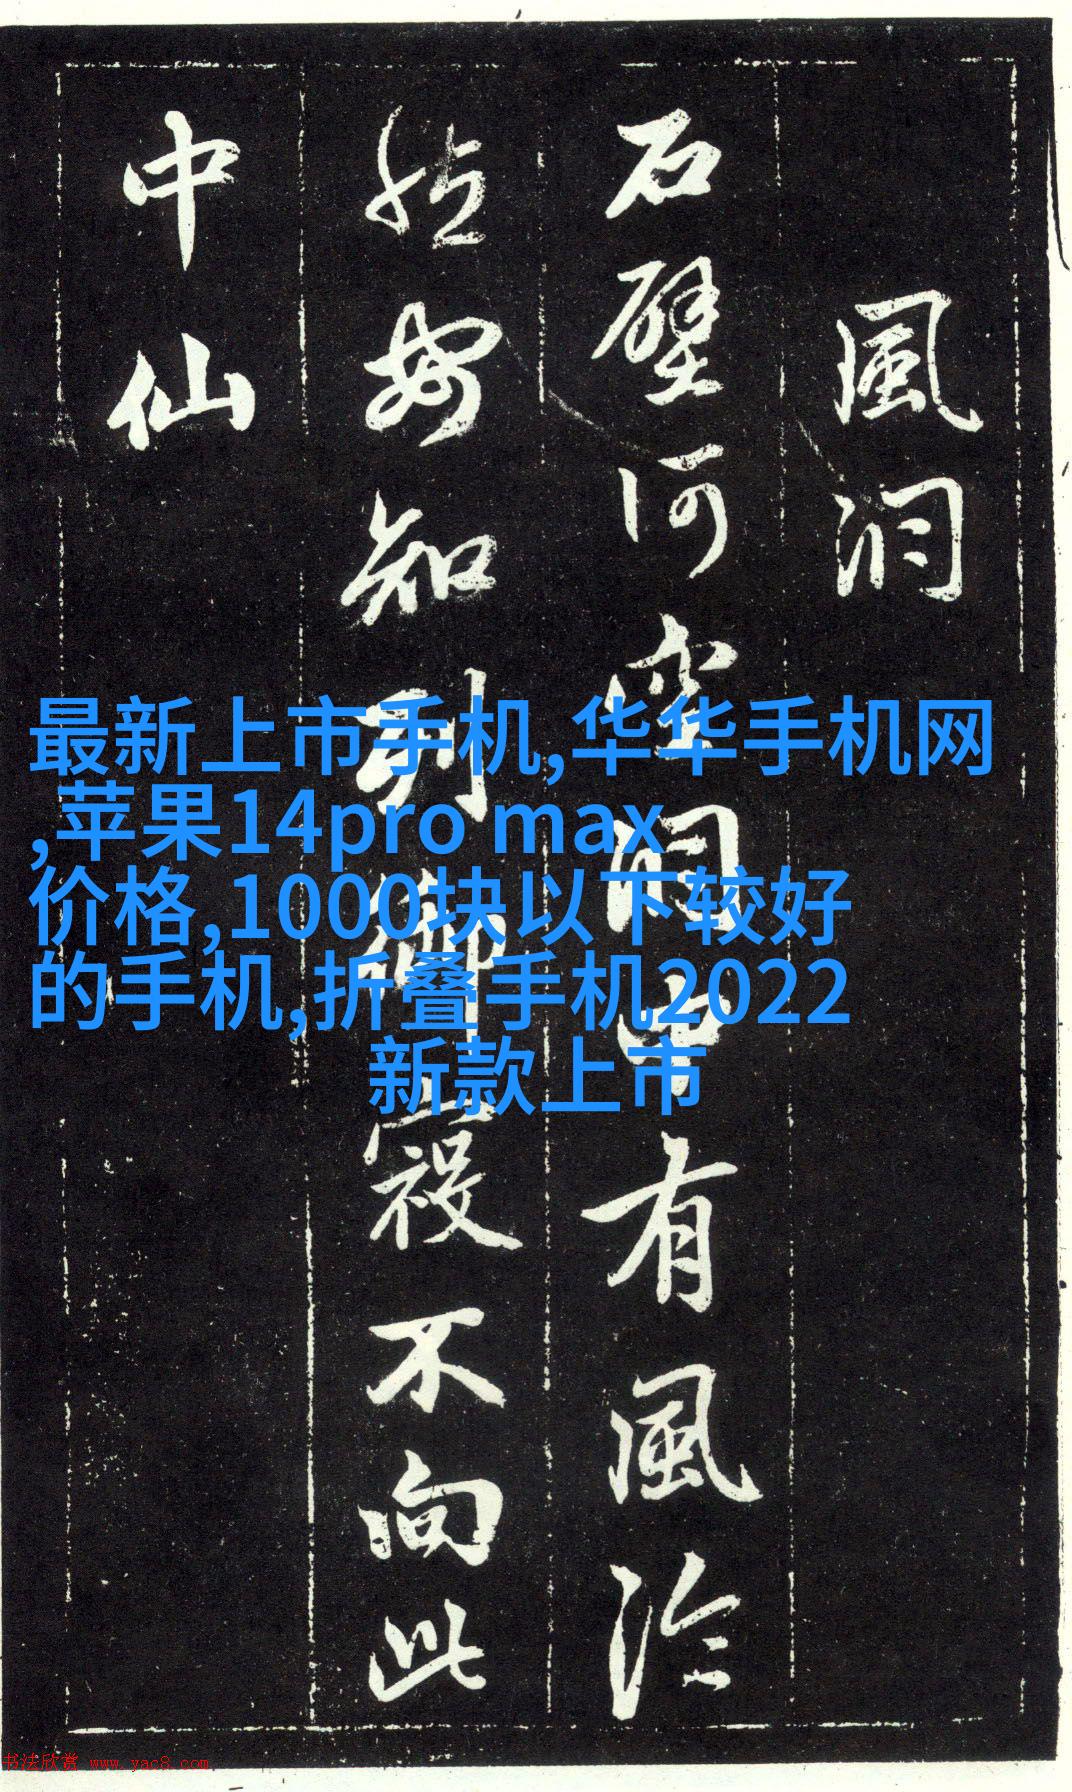 風洞
石壁何空洞中有風泠
然安知列御寇不向此
中仙
最新上市手机,华华手机网
,苹果14pro max
价格,1000块以下较好
的手机,折叠手机2022
新款上市
书法欣赏 www.yac8.com